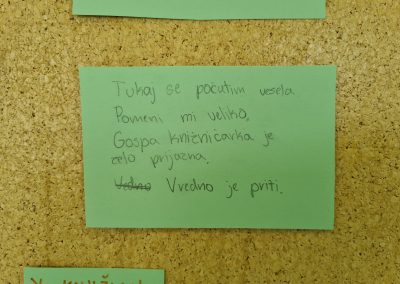 Tukaj se počutim vesela.
Pomeni mi veliko.
Gospa knižničarka je
zelo prijazna.
Vedno Vredno je priti.